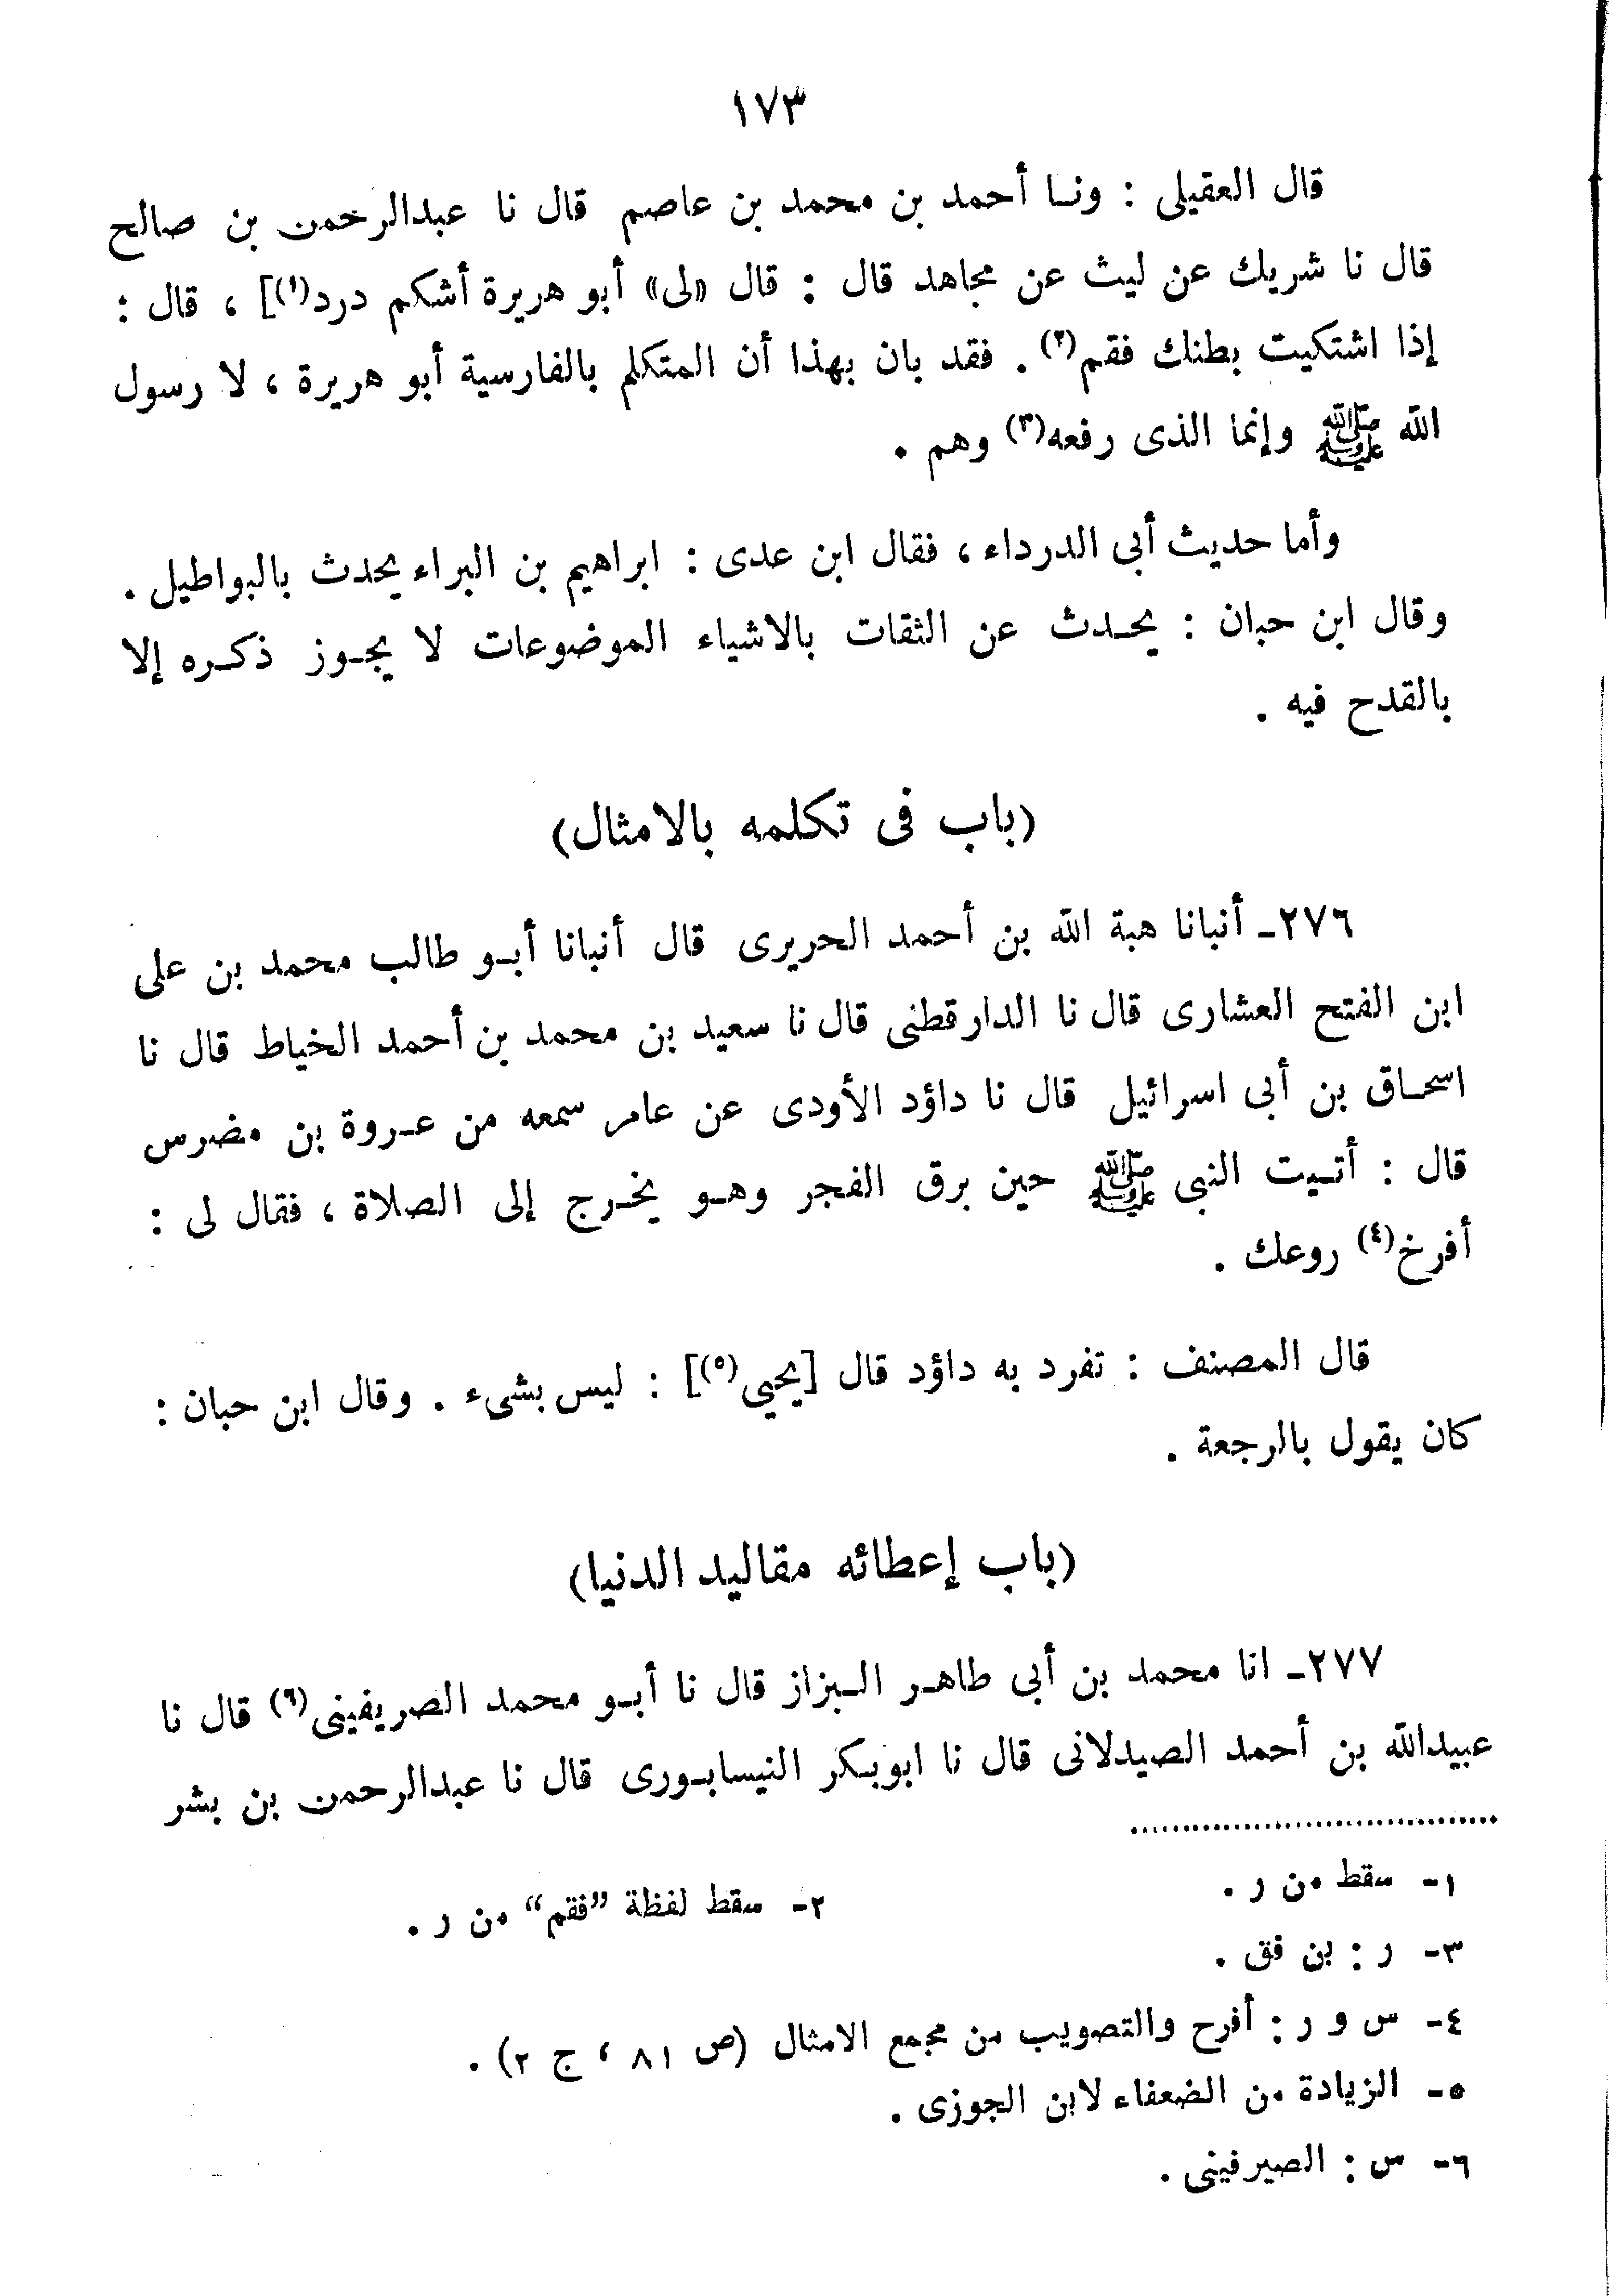 ١٧٣
قال العقيلى : ونا أحمد بن محمد بن عاصم قال نا عبدالرحمن بن صالح
قال نا شريك عن ليث عن مجاهد قال : قال «لى» أبو هريرة أشكم درد(١)] ، قال :
إذا اشتكيت بطنك فقم(٢) . فقد بان بهذا أن المتكلم بالفارسية أبو هريرة ، لا رسول
الله ﷺ وإنما الذى رفعه(٣) وهم .
وأما حديث أبى الدرداء ، فقال ابن عدى : ابراهيم بن البراء يحدث بالبواطيل .
وقال ابن حبان : يحدث عن الثقات بالاشياء الموضوعات لا يجوز ذكره إلا
بالقدح فيه .
(باب فى تكلمه بالامثال)
٢٧٦ـ أنبانا هبة الله بن أحمد الحريرى قال أنبانا أبو طالب محمد بن على
ابن الفتح العشارى قال نا الدارقطنى قال نا سعيد بن محمد بن أحمد الخياط قال نا
اسحاق بن أبى اسرائيل قال نا داؤد الأودى عن عامر سمعه من عروة بن مضرس
قال : أتيت النبى ﷺ حين برق الفجر وهو يخرج إلى الصلاة ، فقال لى :
أفرخ(٤) روعك .
قال المصنف : تفرد به داؤد قال [يحيى(٥)] : ليس بشىء . وقال ابن حبان :
كان يقول بالرجعة .
(باب إعطائه مقاليد الدنيا)
٢٧٧ـ انا محمد بن أبى طاهر البزاز قال نا أبو محمد الصريفينى(٦) قال نا
عبيدالله بن أحمد الصيدلانى قال نا ابوبكر النيسابورى قال نا عبدالرحمن بن بشر
١ـ سقط من ر . ٢ـ سقط لفظة ”فقم“ من ر .
٣ـ ر : بن فق .
٤ـ س و ر : أفرح والتصويب من مجمع الامثال (ص ٨١ ، ج ٢) .
٥ـ الزيادة من الضعفاء لابن الجوزى .
٦ـ س : الصيرفينى .